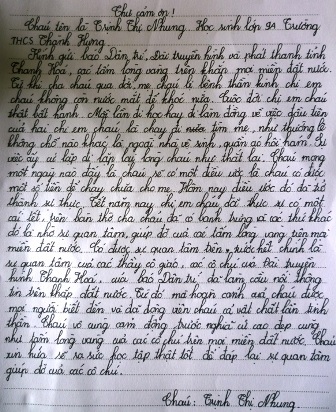 Thư cảm ơn!
Cháu tên là Trịnh Thị Nhung. Học sinh lớp 9A Trường
THCS Thành Hưng.
Kính gửi báo Dân trí, Đài truyền hình và phát thanh tỉnh
Thanh Hoá, các tấm lòng vàng trên khắp mọi miền đất nước.
thế cha cháu qua đời, mẹ cháu bị bệnh thần kinh chị em
cháu không còn nước mắt để khóc nữa. Cuộc đời chị em cháu
thật bất hạnh. Mỗi lần đi học hay đi làm đồng về việc đầu tiên
của hai chị em cháu là chạy đi tìm mẹ, như thường lệ
không chỗ nào khác là ngoài nhà vệ sinh, quần áo hôi hám. Sự
việc ấy cứ lặp đi lặp lại lòng cháu như thắt lại. Cháu mong
một ngày nào đấy là cháu sẽ có một điều ước là cháu có được
một số tiền để chạy chữa cho mẹ. Hôm nay điều ước đó đã trở
thành sự thực. Tết năm nay chị em cháu đã thực sự có một
cái tết, trên bàn thờ cha cháu đã có bánh trưng và các thứ khác
đó là nhờ sự quan tâm, giúp đỡ của các tấm lòng vàng trên mọi
miền đất nước. Có được sự quan tâm trên, trước hết chính là
sự quan tâm của các thầy cô giáo, các cô chú và Đài truyền
hình Thanh Hoá, của báo Dân trí đã làm cầu nối thông
tin trên khắp đất nước. Từ đó mà hoàn cảnh của cháu được
mọi người biết đến và đã động viên cháu cả vật chất lẫn tinh
thần. Cháu vô cùng cảm động trước nghĩa cử cao đẹp cũng
như tấm lòng vàng của các cô chú trên mọi miền đất nước. Cháu
xin hứa sẽ ra sức học tập thật tốt để đáp lại sự quan tâm
giúp đỡ của các cô chú.
Cháu: Trịnh Thị Nhung.